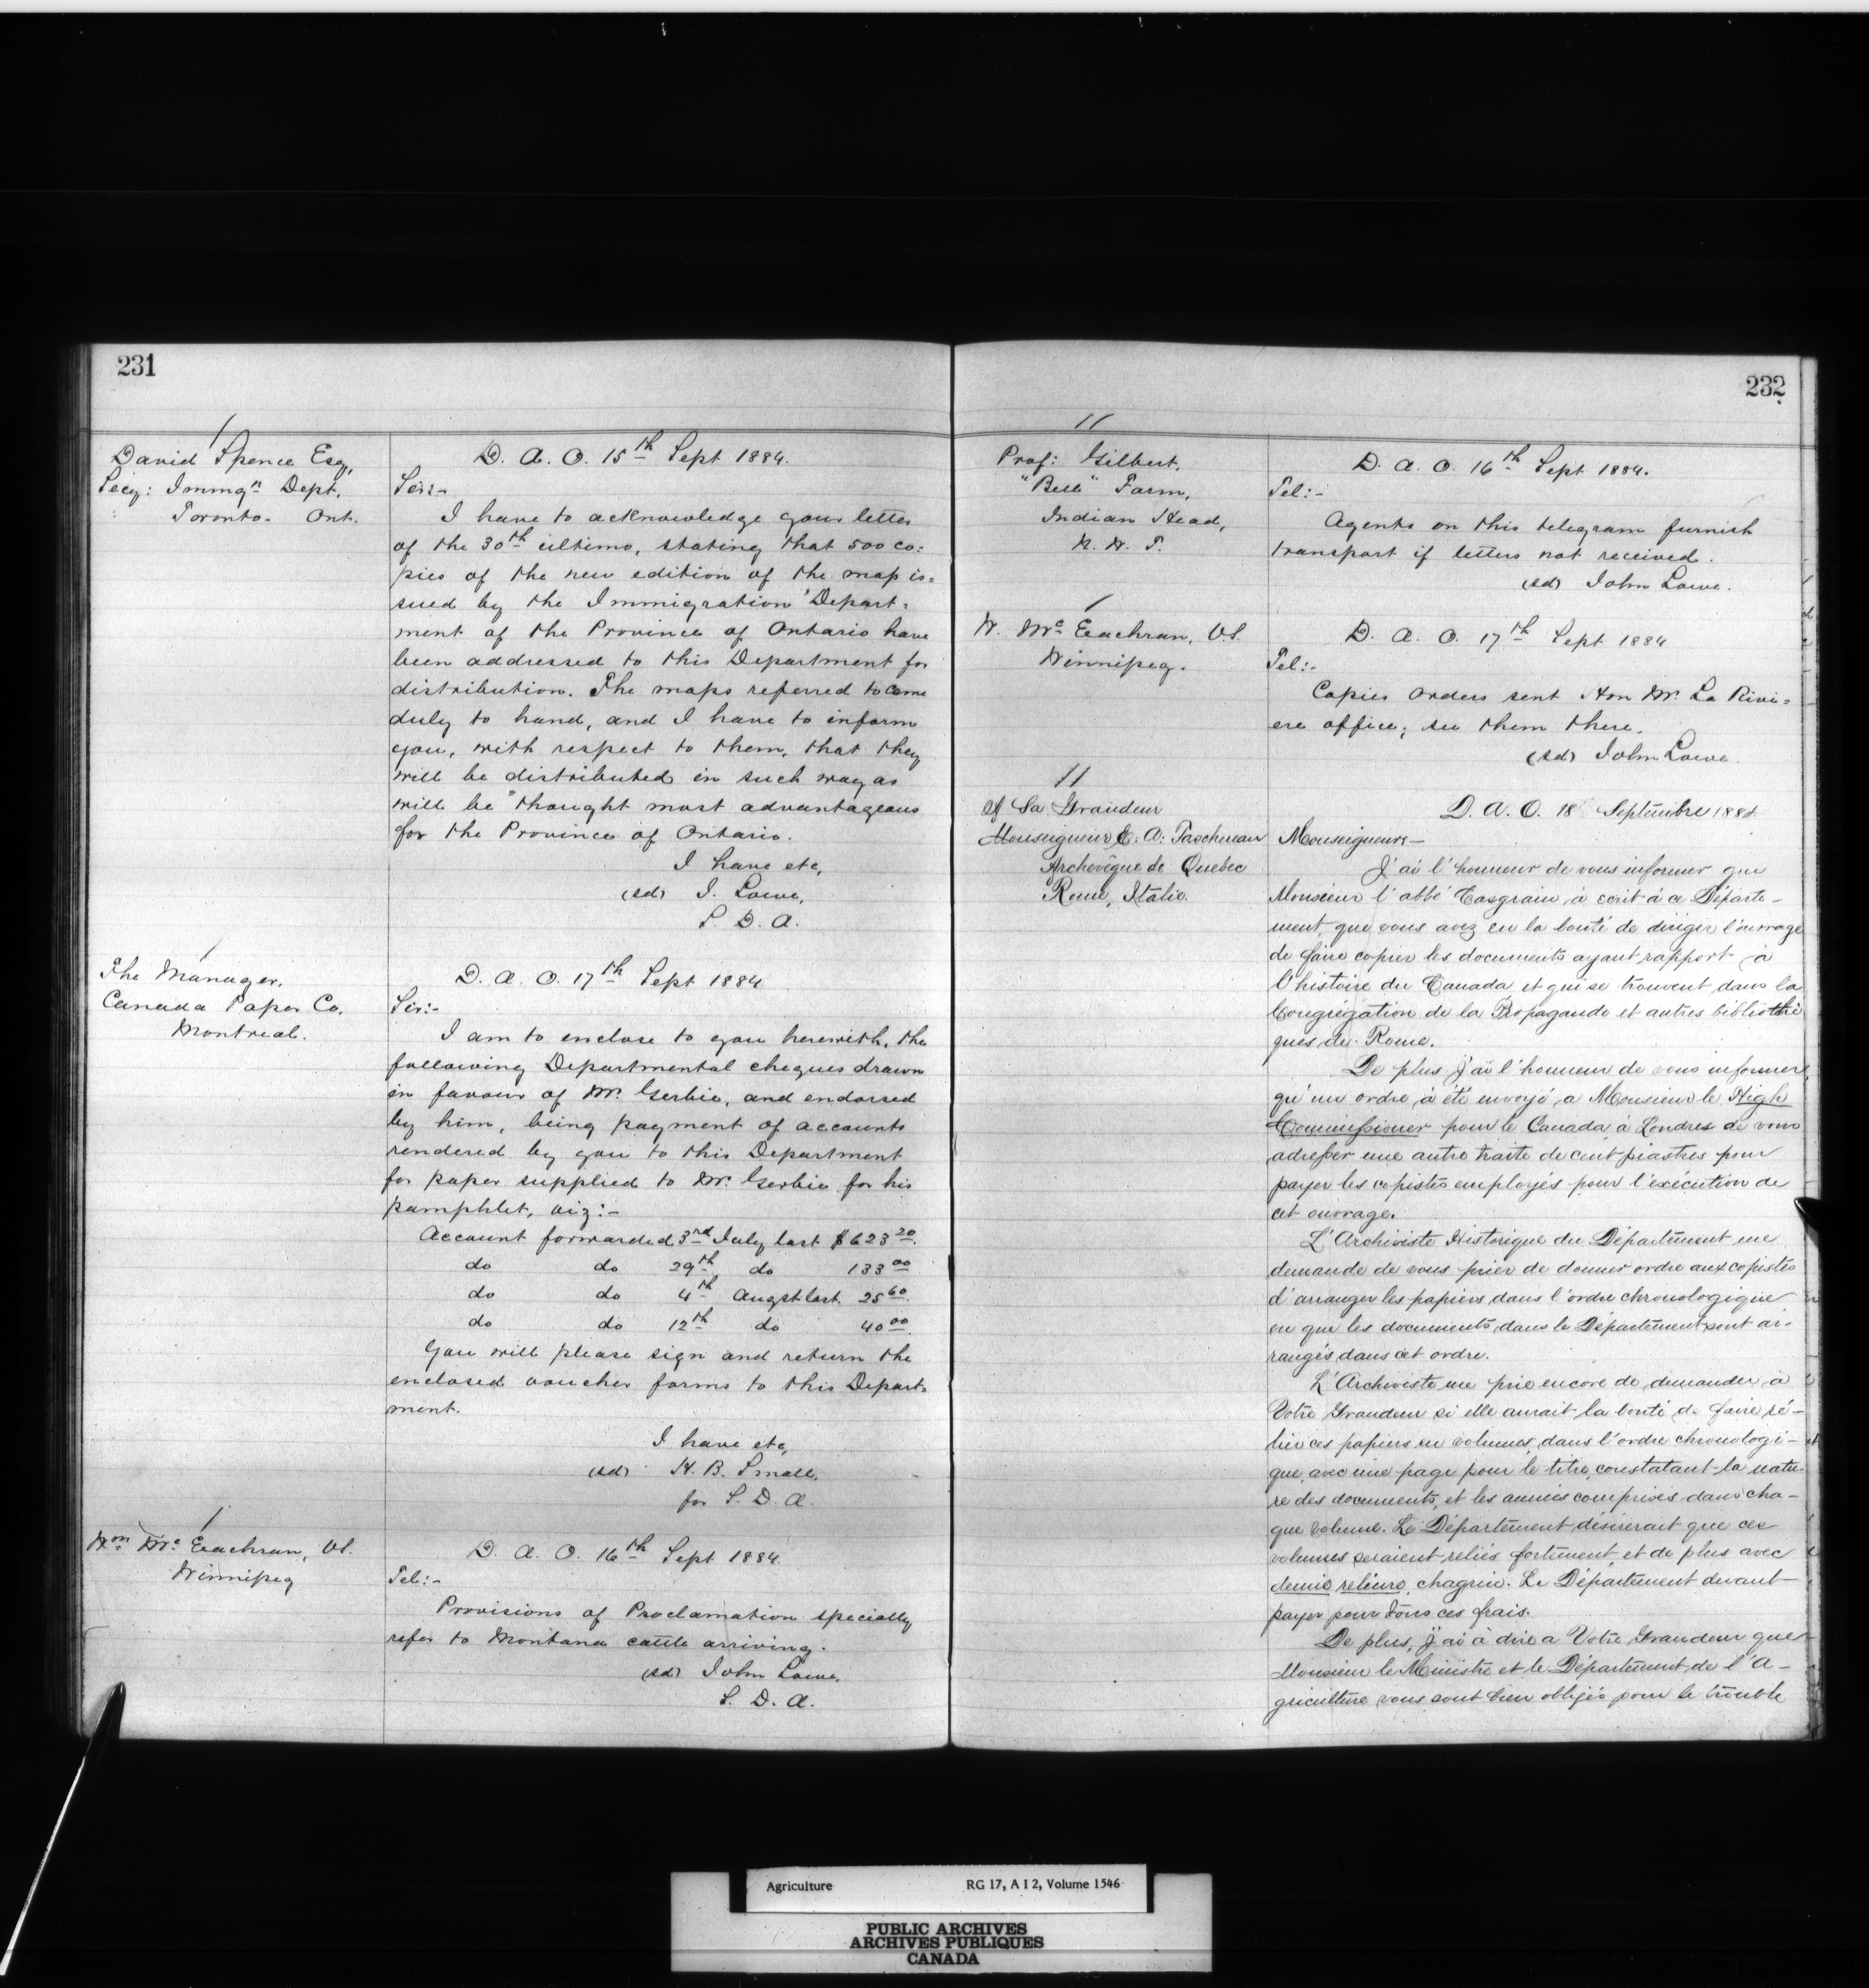 231
David Spence Esq,
Secy: Immgn Dept,
Toronto. Ont.
D. A. O. 15th Sept 1884.
Sir:-
I have to acknowledge your letter
of the 30th ultimo, stating that 500 co:
pies of the new edition of the map is:
sued by the Immigration Depart:
ment of the Province of Ontario have
been addressed to this Department for
distribution. The maps referred to came
duly to hand, and I have to inform
you, with respect to them, that they
will be distributed in such way as
will be thought most advantageous
for the Province of Ontario.
I have etc,
(sd) J. Lowe,
S. D. A.
The Manager,
Canada Paper Co.
Montreal.
D. A. O. 17th Sept 1884
Sir:-
I am to enclose to you herewith, the
following Departmental cheques drawn
in favour of Mr. Gerbié, and endorsed
by him, being payment of accounts
rendered by you to this Department
for paper supplied to Mr. Gerbié for his
pamphlet, viz:-
Account forwarded 3rd July last $623 20.
do do 29th do 133 00
do do 4th Augst last. 25 60.
do do 12th do 40 00.
You will please sign and return the
enclosed voucher forms to this Depart:
ment.
I have etc,
(sd) H. B. Small,
for S. D. A.
Wm. Mc Eachran, V.S.
Winnipeg
D. A. O. 16th Sept 1884.
Tel:-
Provisions of Proclamation specially
refer to Montana cattle arriving.
(sd) John Lowe,
S. D. A.
232
Prof: Gilbert,
"Bell" Farm,
Indian Head,
N. W. T.
D. A. O. 16th Sept 1884.
Tel:-
Agents on this telegram furnish
transport if letters not received.
(sd) John Lowe.
W. Mc Eachran, V.S.
Winnipeg.
D. A. O. 17th Sept 1884
Tel:-
Copies orders sent Hon Mr. La Rivi=
ere office; see them there.
(sd) John Lowe.
A Sa Grandeur
Monseigneur E. A. Taschereau
Archevêque de Quebec
Rome, Italie.
D. A. O. 18 Septembre 1884.
Monseigneur-
J'ai l'honneur de vous informer que
Monsieur l'abbé Casgrain, à écrit à ce Départe-
ment, que vous avez eu la bonté de diriger l'ouvrage
de faire copier les documents ayant rapport à
l'histoire du Canada et qui se trouvent dans la
Congrégation de la Propagande et autres bibliothè
ques de Rome.
De plus j'ai l'honneur de vous informer,
qu'un ordre à été envoyé, a Monsieur le High
Commissioner pour le Canada à Londres de vous
adresser une autre traite de cent piastres pour
payer les copistes employés pour l'exécution de
cet ouvrage.
L'Archiviste Historique du Département me
demande de vous prier de donner ordre aux copistes
d'arranger les papiers dans l'ordre chronologique
en que les documents dans le Département sont ar-
rangés dans cet ordre.
L'Archiviste me prie encore de demander à
Votre Grandeur si elle aurait la bonté de faire ré-
lier ces papiers en volumes, dans l'ordre chronologi-
que, avec une page pour le titre, constatant la natu-
re des documents, et les années comprises dans cha-
que volume. Le Département désirerait que ces
volumes seraient reliés fortement et de plus avec
demie reliure, chagrin. Le Département devant
payer pour tous ces frais.
De plus, j'ai à dire a Votre Grandeur que
Monsieur le Ministre et le Département de l'A-
griculture vous sont bien obligés pour le trouble
Agriculture RG 17, A I 2, Volume 1546
PUBLIC ARCHIVES
ARCHIVES PUBLIQUES
CANADA